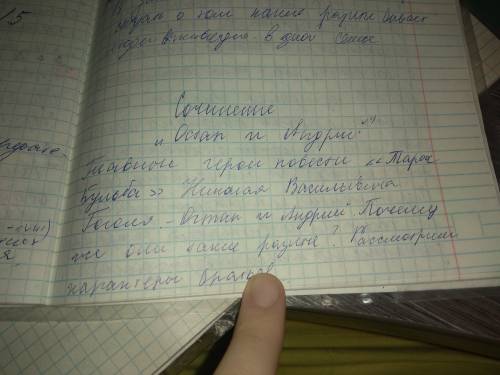 15
о том какие разные бывают
люди в одной семье
Сочинение
"Остап и Андрий"
Главные герои повести «Тарас
Бульба» Николая Васильевича
Гоголя - Остап и Андрий. Почему
же они такие разные? Рассмотрим
характеры братьев